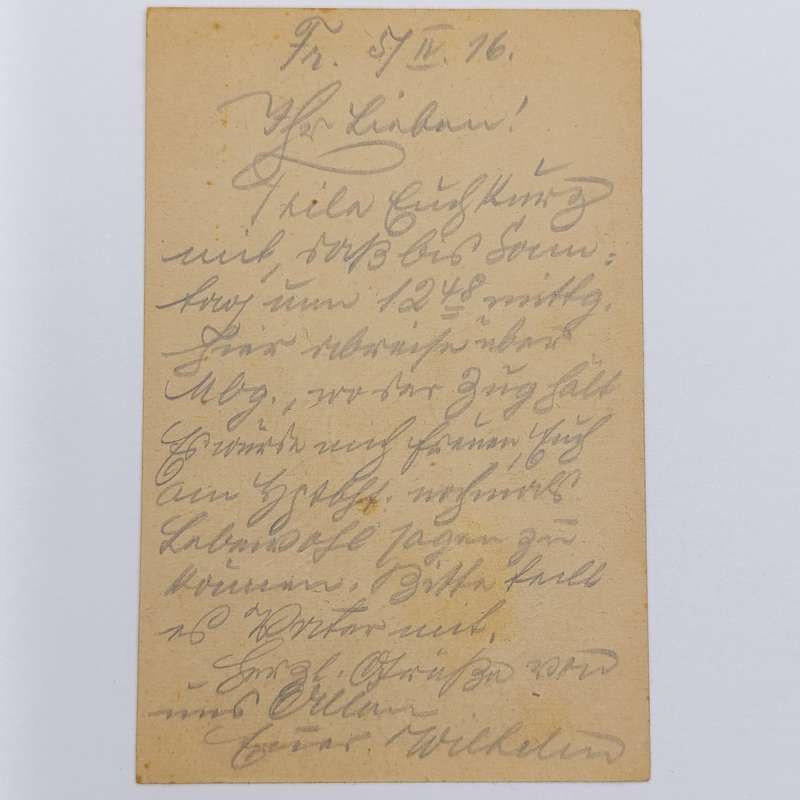 Fr. 5/IV. 16.
Ihr Lieben!
Teile Euch kurz
mit, daß bis Sonn-
tag um 12 48 mittg.
hier abreise über
Mbg., wo der Zug hält
Es würde mich freuen, Euch
am Hptbhf. nochmals
Lebewohl sagen zu
können. Bitte teilt
es Vater mit.
Herzl. Grüße von
uns Allen
Euer Wilhelm